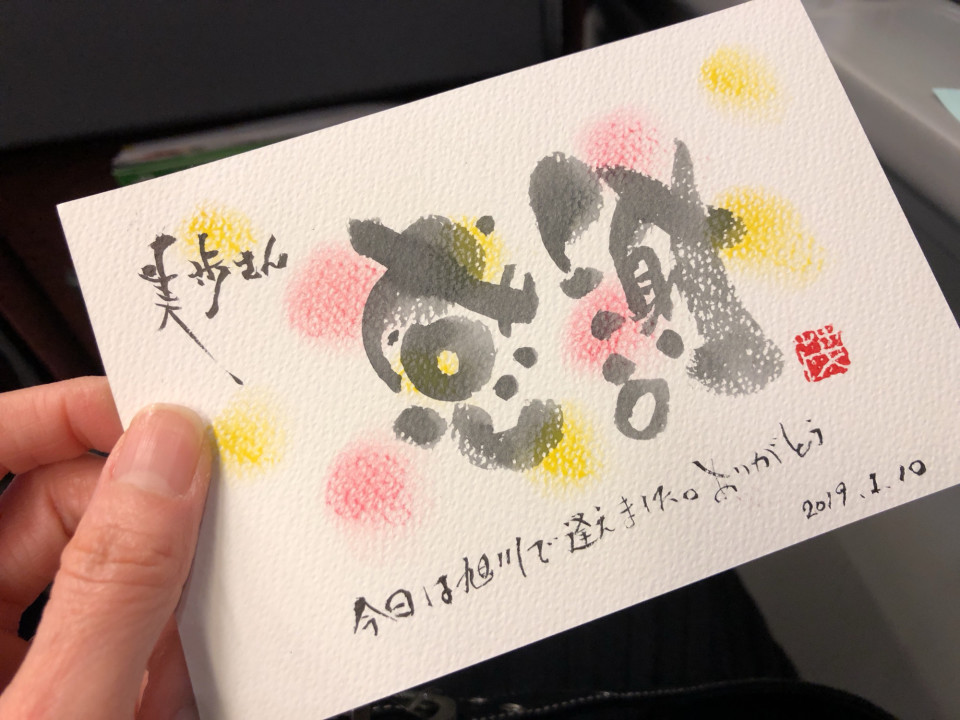 美歩さん
感謝
今日は旭川で逢えました。ありがとう
2019.1.10